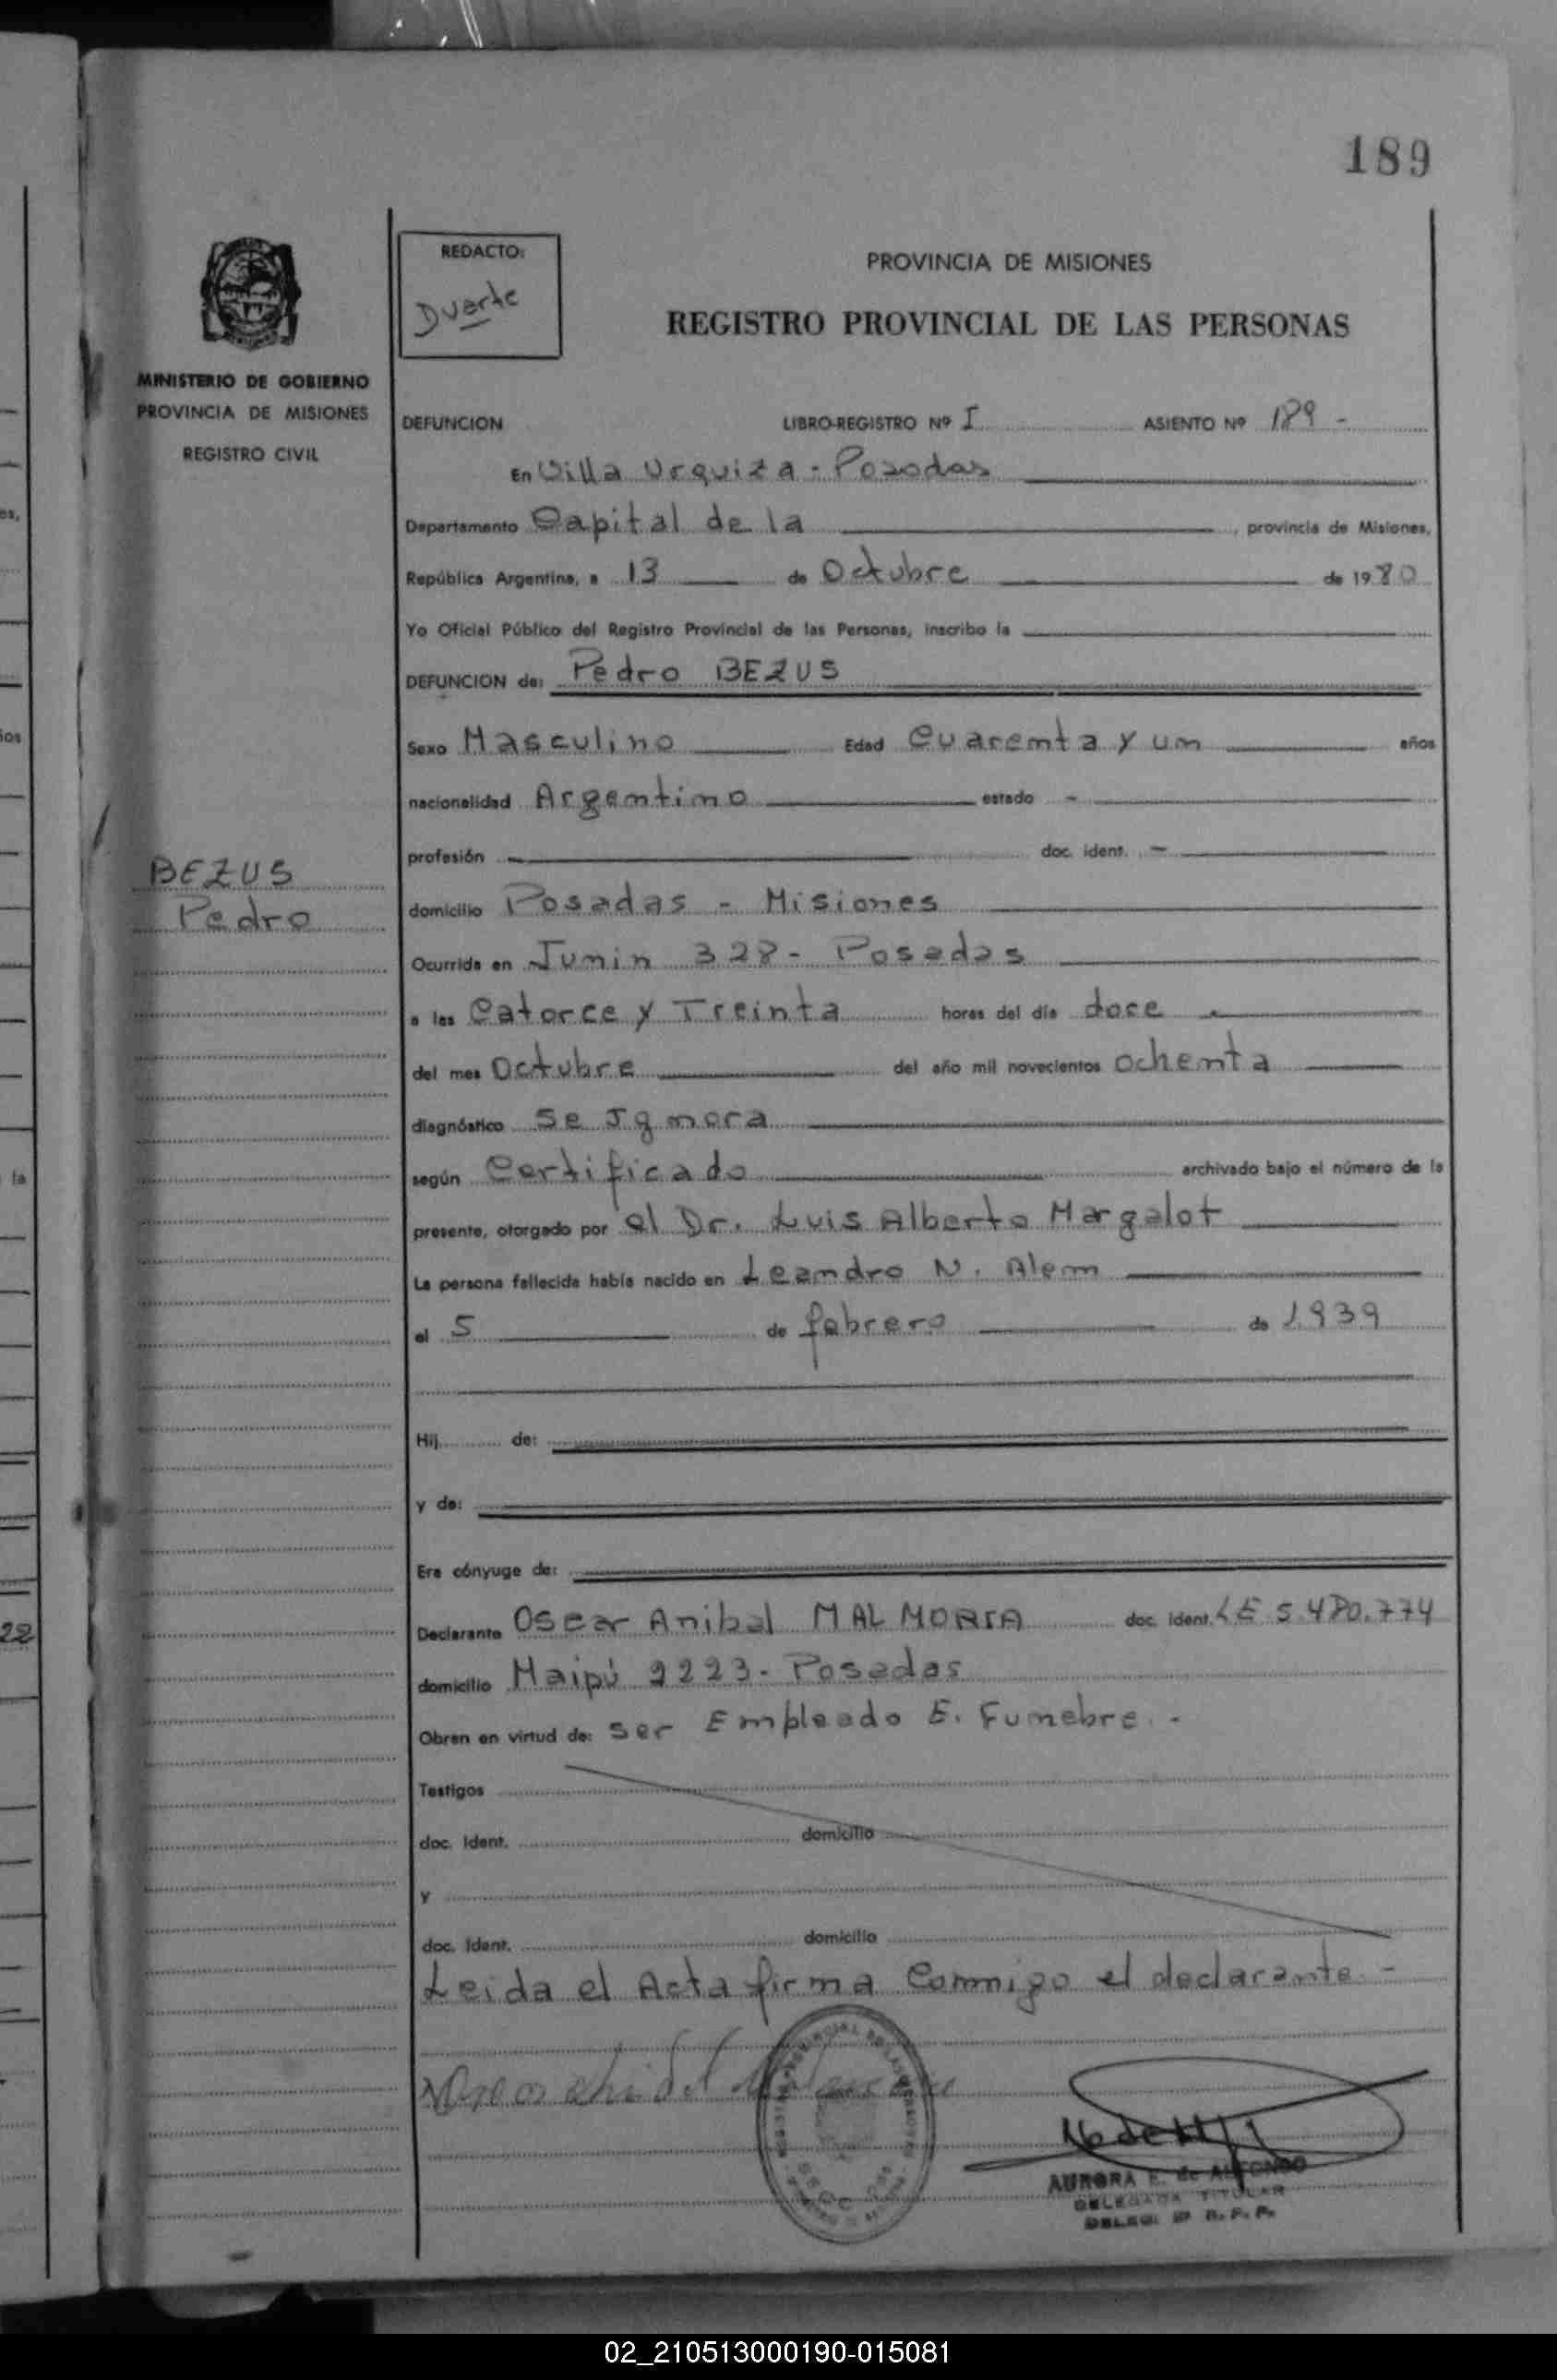 189
REDACTO:
Duarte
PROVINCIA DE MISIONES
REGISTRO PROVINCIAL DE LAS PERSONAS
MINISTERIO DE GOBIERNO
PROVINCIA DE MISIONES
REGISTRO CIVIL
DEFUNCION LIBRO-REGISTRO Nº I ASIENTO Nº 189 -
En Villa Urquiza - Posodas
Departamento Capital de la , provincia de Misiones,
República Argentina, a 13 de Octubre de 1980
Yo Oficial Público del Registro Provincial de las Personas, inscribo la
DEFUNCION de: Pedro BEZUS
Sexo Masculino Edad Cuarenta y un años
nacionalidad Argentino estado -
profesión doc. ident. -
BEZUS
Pedro
domicilio Posadas - Misiones
Ocurrida en Junin 328 - Posadas
a las Catorce y Treinta horas del día doce
del mes Octubre del año mil novecientos ochenta
diagnóstico Se Ignora
según Certificado archivado bajo el número de la
presente, otorgado por el Dr. Luis Alberto Margalot
La persona fallecida había nacido en Leandro N. Alem
el 5 de febrero de 1939
Hij de:
y de:
Era cónyuge de:
Declarante Oscar Anibal MALMORIA doc. ident. LE 5.480.774
domicilio Maipú 2223 - Posadas
Obran en virtud de: ser Empleado E. Funebre. -
Testigos
doc. ident. domicilio
y
doc. ident. domicilio
Leida el Acta firma Conmigo el declarante -
AURORA E. de ALFONSO
DELEGADA TITULAR
R. P. P.
es,
ios
la
22
02_210513000190-015081